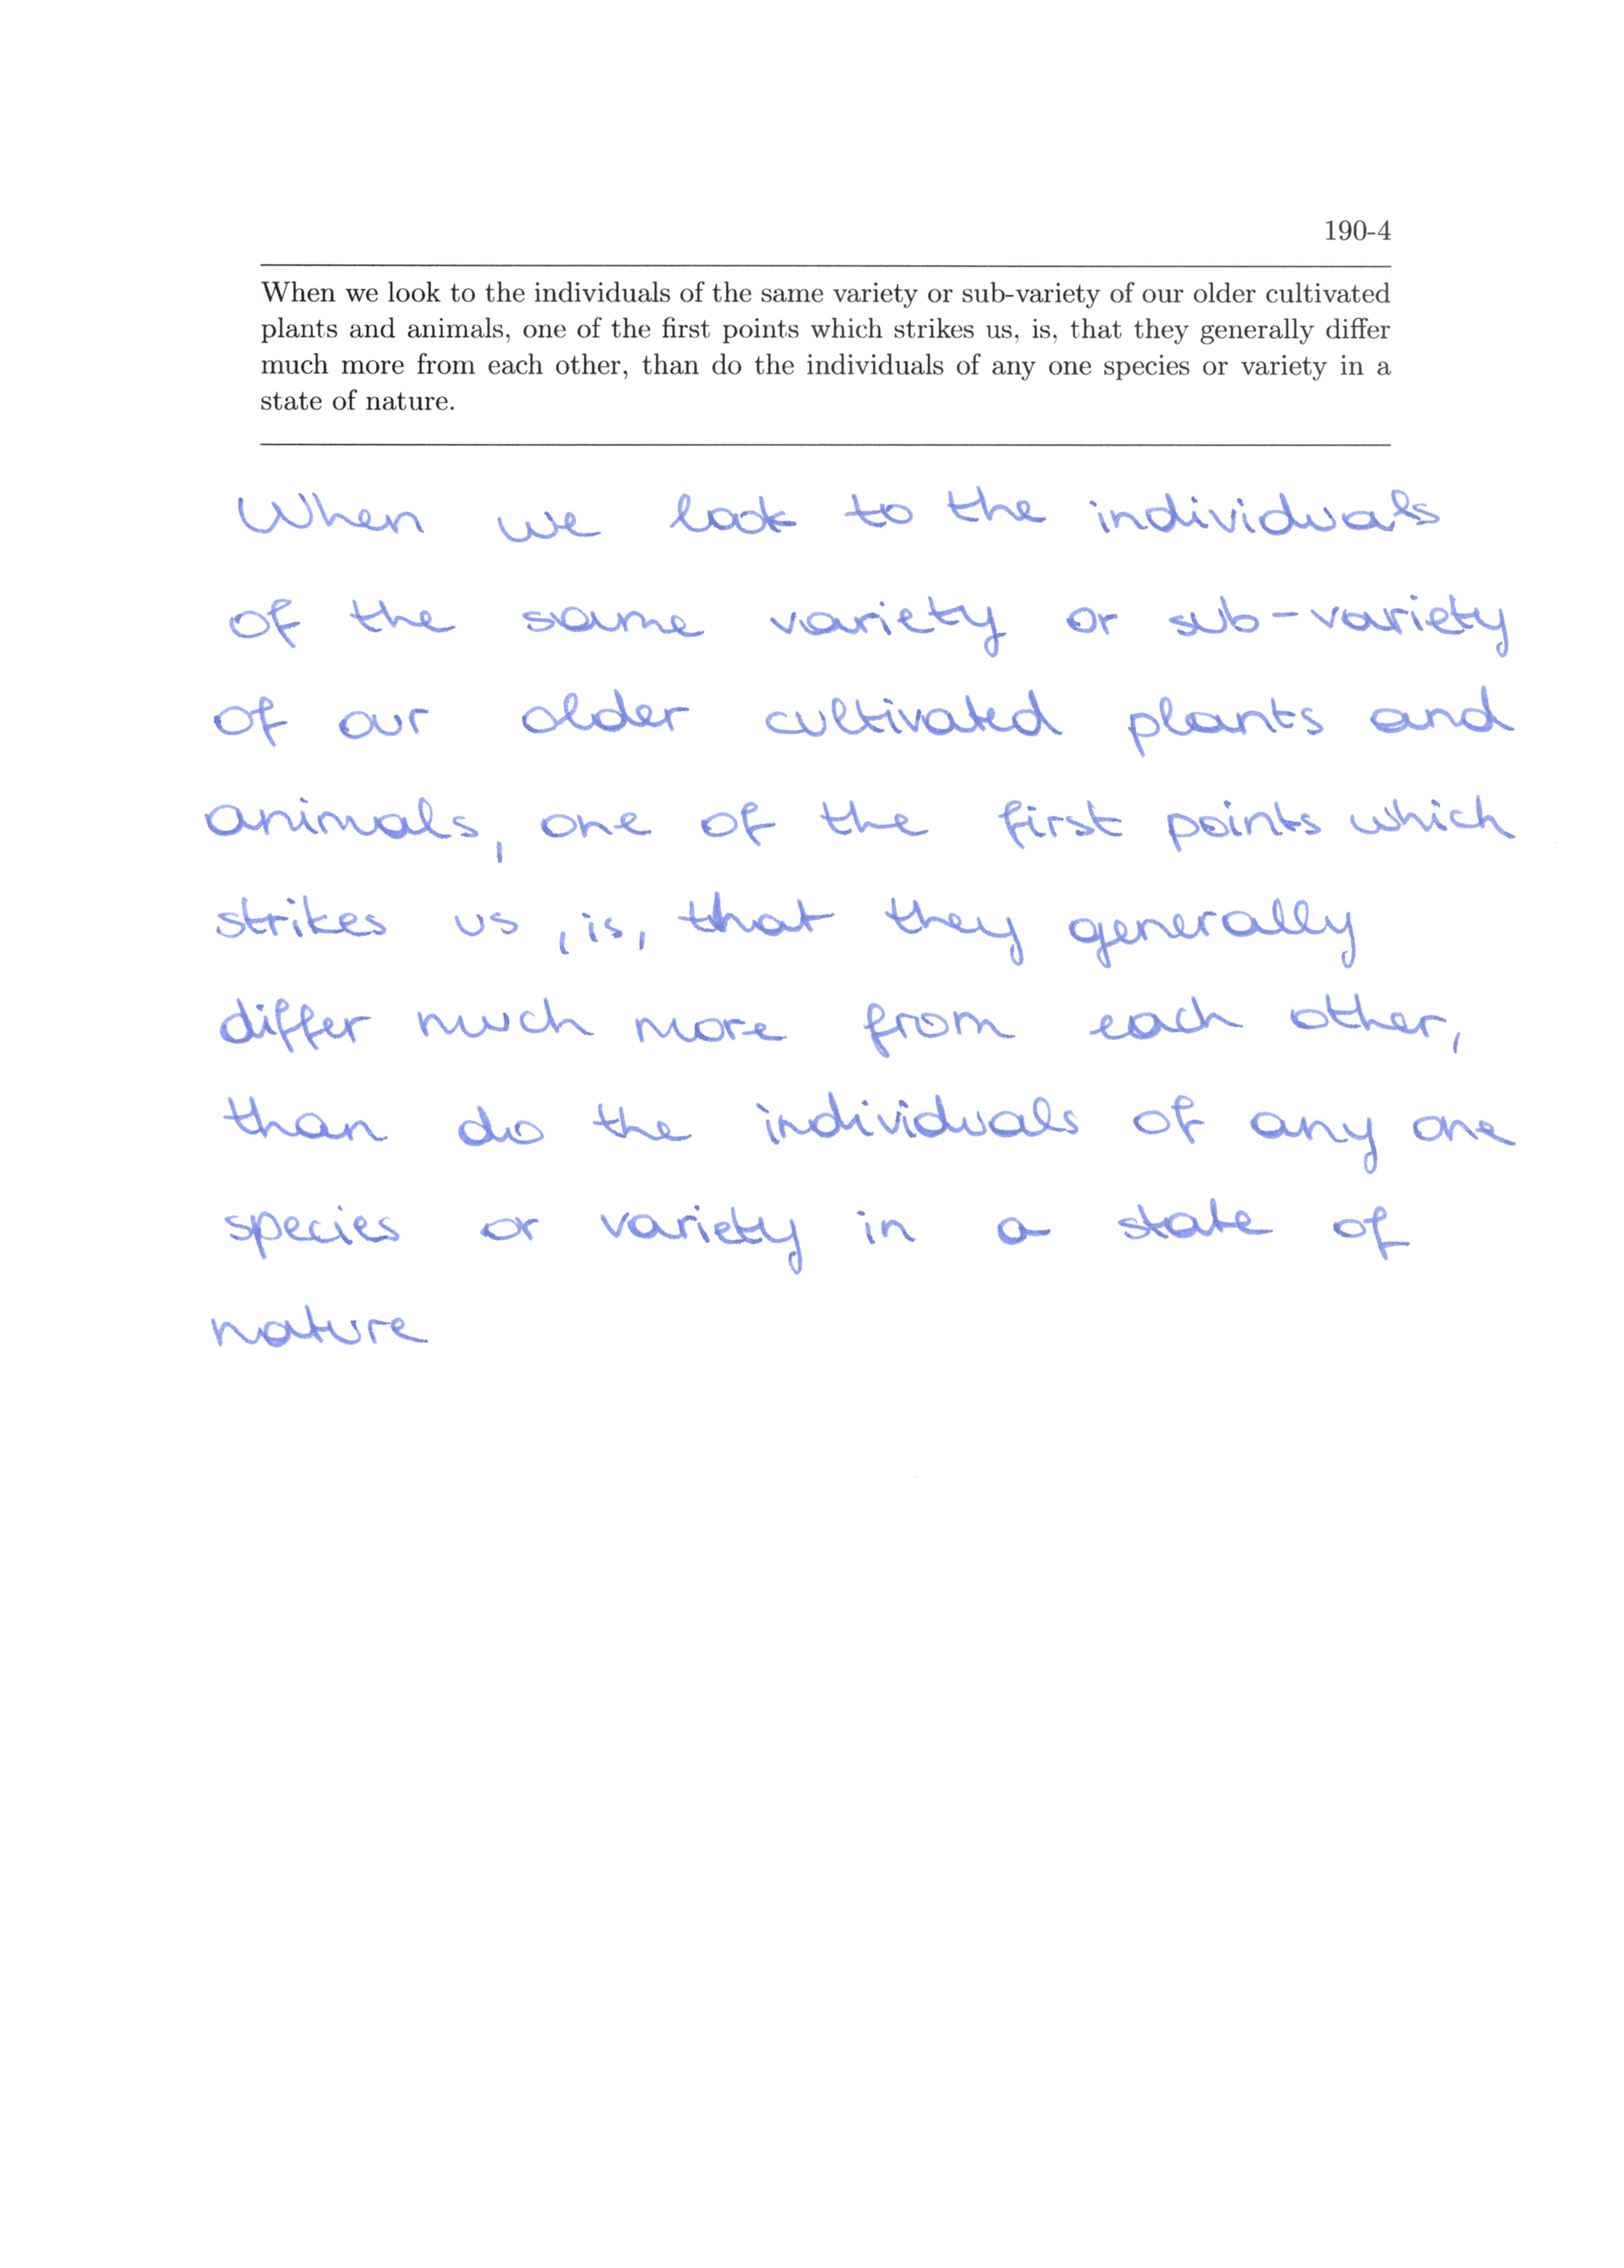 190-4
When we look to the individuals of the same variety or sub-variety of our older cultivated
plants and animals, one of the first points which strikes us, is, that they generally differ
much more from each other, than do the individuals of any one species or variety in a
state of nature.
When we look to the individuals
of the same variety or sub-variety
of our older cultivated plants and
animals, one of the first points which
strikes us, is, that they generally
differ much more from each other,
than do the individuals of any one
species or variety in a state of
nature